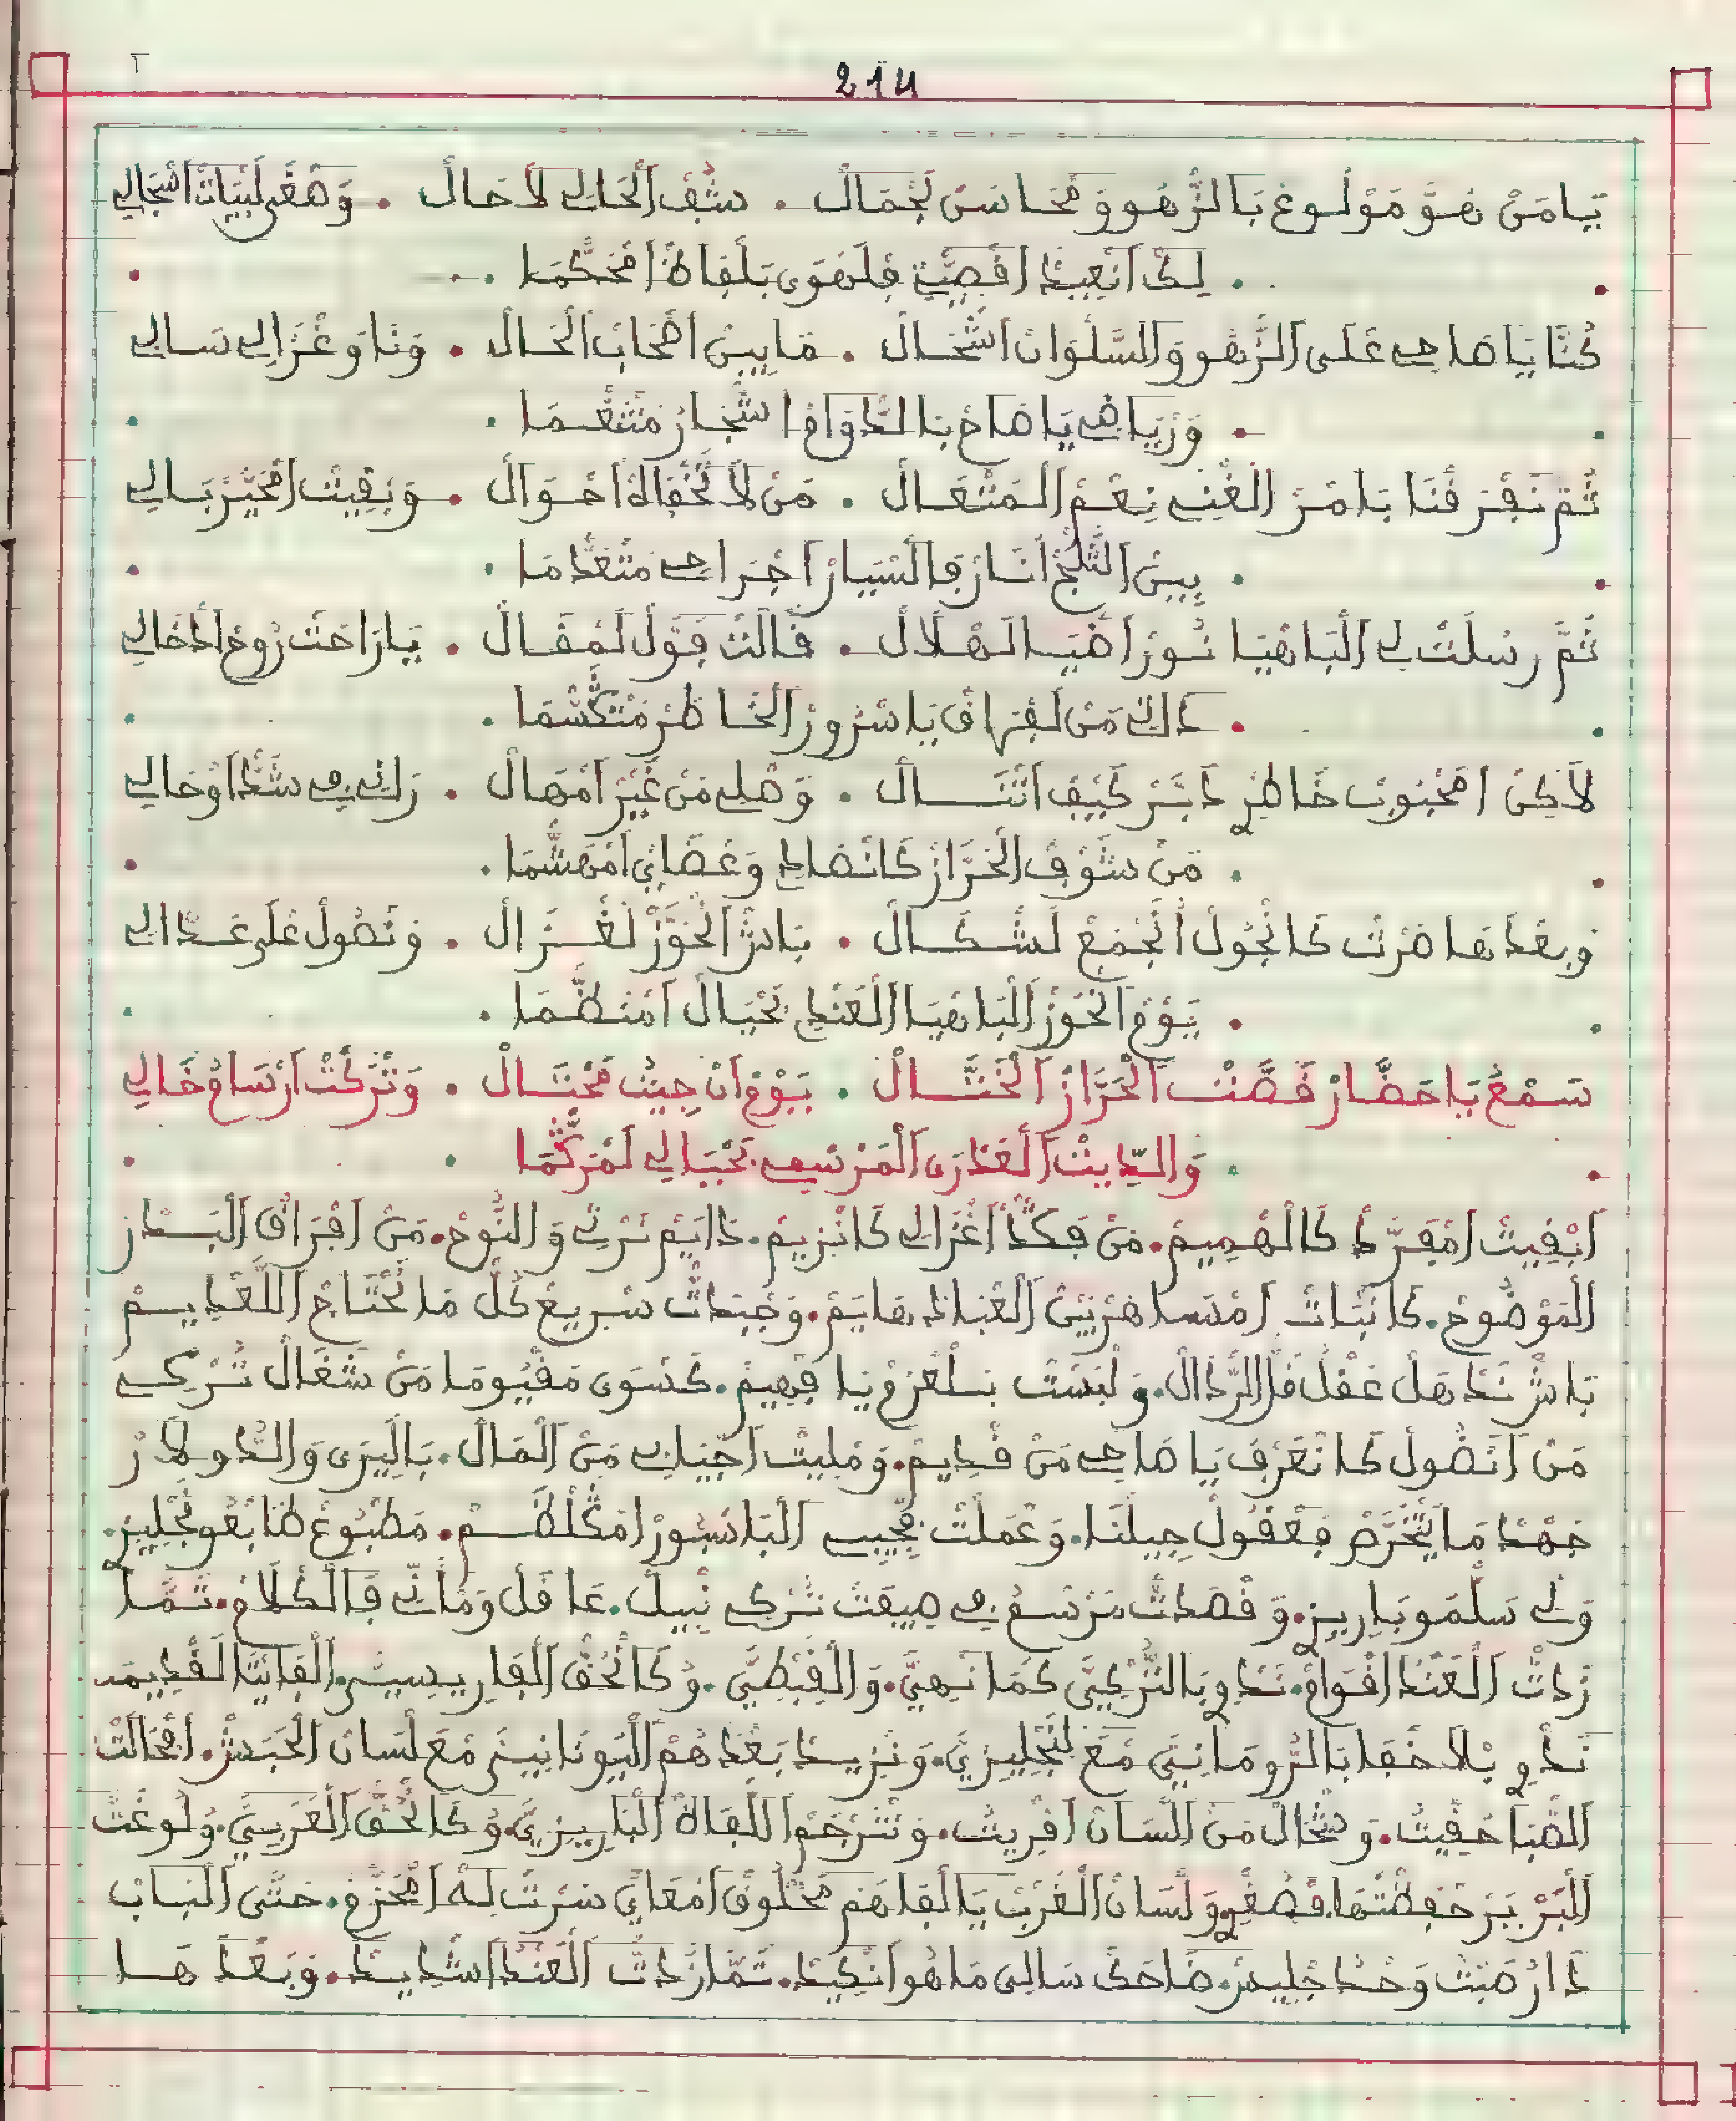 214
يَامَنْ هُوَّ مَوْلُوعْ بَالزّْهُو وَمْحَاسَنْ لَجْمَالْ . شُفْ الْحَالِي لَا حَالْ . وَصْغَى لَبْيَاتْ اسْجَالِي
. لِكْ انْعِيدْ اقْصِيَّة فِلَهْوَى بَلْفَاظْ امْحَكّْمَا .
كُنَّا يَا صَاحِي عَلَى الزّْهُو وَالسَّلْوَانْ اشْحَالْ . مَابِينْ اصْحَابْ الْحَالْ . وَنَا وَغْزَالِي سَالِي
. وَرْيَاضِي يَا صَاحْ بَالدّْوَاحْ اشْجَارُ مَتْنَعّْمَا .
ثُمَّ تفَرَقْنَا بَامْرْ الْغْنِي نِعْمْ الْمَتْعَالْ . مَنْ لَا تَخْفَاهْ احْوَالْ . وَبْقِيتْ امْحَيَّرْ بَالِي
. بِينْ الثَّلْجْ انَارْ فَالسْيَارْ اجْرَاحِي مَتْعَدّْمَا .
ثُمَّ رسْلَتْ لِي الْبَاهْيَا نُورْ اضْيَا الهْلَالْ . قَالَتْ فَوْلْ لَمْقَالْ . يَا رَاحَتْ رُوحْ ادْخَالِي
. دَاتِي مَنْ لَفْرَاقْ يَا سْرُورْ الْخَاطْرْ مَتْكَسّْمَا .
لَاكِنْ امْحْبُوبْ خَاطْرِي دَبَّرْ كِيفْ اتَّنَالْ . وَصْلِي مَنْ غِيرْ امْهَالْ . رَانِي فِي شَدّْ اوْحَالِي
. مَنْ شَوْفْ الْحَرَّازْ كَانْصَادِ وَعْضَايْ امْهَشّْمَا .
وبعْدْهَا صَرْتْ كَانْجُولْ انْجْمَعْ لَشْكَالْ . بَاشْ انْحَوَّزْ لَغْزَالْ . وَنْصُولْ عْلَى عَدْالِي
. يَوْمْ انْحُوزْ الْبَاهْيَا الْعَنْدِي بَحْيَالْ امْنَظّْمَا .
سَمْعْ يَا حَضَّارْ قَصّْتْ الْحَرَّازْ الْخَتَّالْ . يَوْمْ انْ جِيتْ مَحْتَالْ . وَتْرَكْتْ ارْسَامُ خَالِي
. وَادِّيتْ الْعَدْرَى الْمَرْسِي بَحْيَالِي لَمْرَكّْمَا .
ابْقِيتْ امْفَرَّدْ كَانْهِيمْ. مَنْ فَكْدْ اغْزَالِي كَانْزِيمْ. دَايَمْ نَرْثِي وَالنُّوحْ. مَنْ افْرَاقْ الْبَدْرْ
الْمَوْضُوحْ. كَانْبَاتْ امْسَاهَرْ بِينْ الْغْيَادْ هَايَمْ. وَجْبَدْتْ سْرِيعْ كُلّْ مَا نَحْتَاجْ اللّْغْدِيمْ
بَاشْ نَدْهَلْ عَقْلْ قَلّْ الرّْدَالْ. وَلْبَسْتْ بَلْعْزَمْ يَا فْهِيمْ. كَسْوَى مَقْيُومَا مَنْ شْغَالْ تُرْكِي
مَنْ اسْطَنْبُولْ كَانْعَرْفُ يَا صَاحِي مَنْ قْدِيمْ. وَمْلِيتْ اجْيَابِي مَنْ الْمَالْ. بَالِّيرَى وَالدُّولَارْ
جَهْدْ مَا يَتْخَرَّصْ فَعْقُولْ جِيلْنَا. وَعْمَلْتْ فْجِيبِي الْبَاسْبُورْ امْكَلْطَمْ. مَطْبُوعْ طَابْعُو نْجْلِيزْ.
وَلِي سَلّْمُو بَارِيزْ. وَقْصَدْتْ مَرْسْمُ فِي صِيفَتْ تُرْكِي نْبِيلْ. عَاقَلْ وَمْأَنِّي فَالْكْلَامْ. تَمَّا
زَدْتْ الْعَنْدُ اقْوَامْ. نَدْوِي بَالتُّرْكِيَّ كَمَا نْهِيَّ. وَالْقِبْطِيَّ. وُكَانْحَقْ الْفَارِيسِيَّ. الْفَانْيَا لَقْدِيمَ
نَدْوِي بْلَا خْفَا بَالرُّومَانِيَّ مْعَ لَنْجْلِيزِيَّ. وَنْزِيدْ بَعْدْهُمْ الْيُونَانِيَّ مْعَ لْسَانْ الْحَبْشْ. افْحَالَتْ
الصّْبَا حْفِيتْ. وَشْحَالْ مَنْ اللّْسَانْ اقْرِيتْ. وَنْتَرْجَمْ اللّْفَاظْ الْبَارِيزِيَّ. وُكَانْحَقْ الْعَرْبِيَّ. وُلُوغَتْ
الْبَرْبَرْ حْفَظْتْهَا فْصُغْرِي وَلْسَانْ الْغَرْبْ يَا الْفَاهَمْ مَخْلُوقْ امْعَايْ سَرْتْ لَهْ امْحَزَّمْ. حَتَّى الْبَابْ
دَارُ صَبْتْ وَحْدُ جْلِيسْ. ضَاحَكْ سَالِي مَاهُو انْكِيدْ. تَمَّا زَدْتْ الْعَنْدُ اشْدِيدْ. وَبَعْدْ هَا